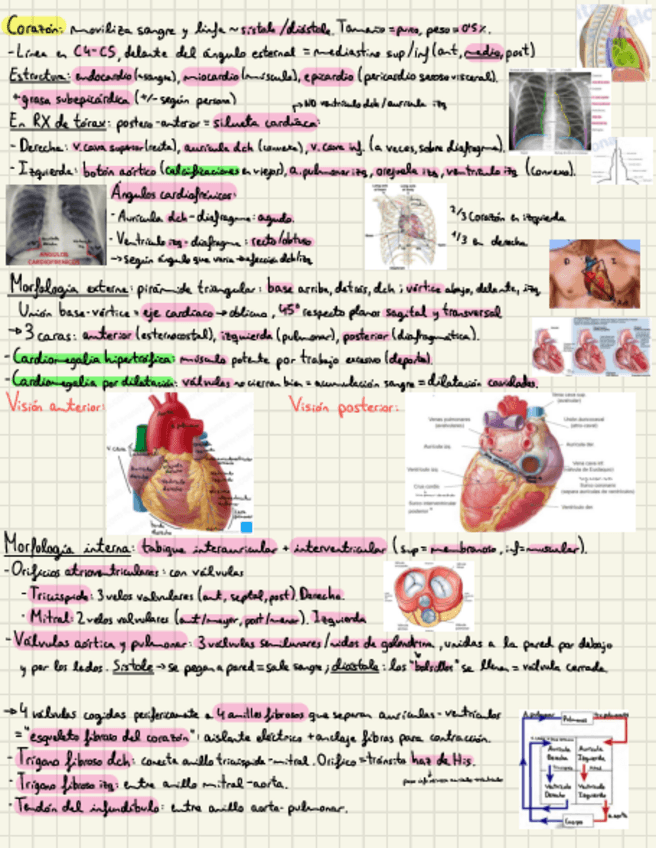 Corazón: moviliza sangre y linfa ~ sístole/diástole. Tamaño = puño, peso = 0'5%.
- Línea en C4-C5, delante del ángulo esternal = mediastino sup/inf (ant, medio, post)
Estructura: endocardio (+sangre), miocardio (músculo), epicardio (pericardio seroso visceral).
+ grasa subepicárdica (+/- según persona)
→ NO ventrículo dch / aurícula izq
En RX de tórax: postero-anterior = silueta cardíaca:
- Derecha: v. cava superior (recta), aurícula dch (convexa), v. cava inf. (a veces, sobre diafragma).
- Izquierda: botón aórtico (calcificaciones en viejos), a. pulmonar izq, orejuela izq, ventrículo izq (convexo).
Ángulos cardiofrénicos:
- Aurícula dch - diafragma: agudo.
- Ventrículo izq - diafragma: recto/obtuso
→ según ángulo que varía → afección dch/izq
ÁNGULOS
CARDIOFRÉNICOS
2/3 Corazón en izquierda
1/3 en derecha
D I
Morfología externa: pirámide triangular: base arriba, detrás, dch; vértice abajo, delante, izq
Unión base-vértice = eje cardíaco → oblicuo, 45° respecto planos sagital y transversal
→ 3 caras: anterior (esternocostal), izquierda (pulmonar), posterior (diafragmática).
- Cardiomegalia hipertrófica: músculo potente por trabajo excesivo (deporte).
- Cardiomegalia por dilatación: válvulas no cierran bien = acumulación sangre = dilatación cavidades.
Visión anterior:
Visión posterior:
Vena cava sup.
Venas pulmonares
Aurícula izq
Aurícula der
Vena cava inf.
Ventrículo izq
Crux cordis
Surco coronario
(separa aurículas de ventrículos)
Surco interventricular
posterior
Ventrículo der
Morfología interna: tabique interauricular + interventricular (sup = membranoso, inf = muscular).
- Orificios atrioventriculares: con válvulas
- Tricúspide: 3 velos valvulares (ant, septal, post). Derecha.
- Mitral: 2 velos valvulares (ant/mayor, post/menor). Izquierda
- Válvulas aórtica y pulmonar: 3 válvulas semilunares/nidos de golondrina, unidas a la pared por debajo
y por los lados. Sístole → se pegan a pared = sale sangre; diástole: los "bolsillos" se llenan = válvula cerrada
→ 4 válvulas cogidas periféricamente a 4 anillos fibrosos que separan aurículas-ventrículos
= "esqueleto fibroso del corazón": aislante eléctrico + anclaje fibras para contracción.
- Trígono fibroso dch: conecta anillo tricúspide-mitral. Orificio = tránsito haz de His.
- Trígono fibroso izq: entre anillo mitral-aorta.
- Tendón del infundíbulo: entre anillo aorta-pulmonar.
A. pulmonar
Pulmones
Aurícula Derecha
Aurícula Izquierda
Ventrículo Derecho
Ventrículo Izquierdo
Cuerpo